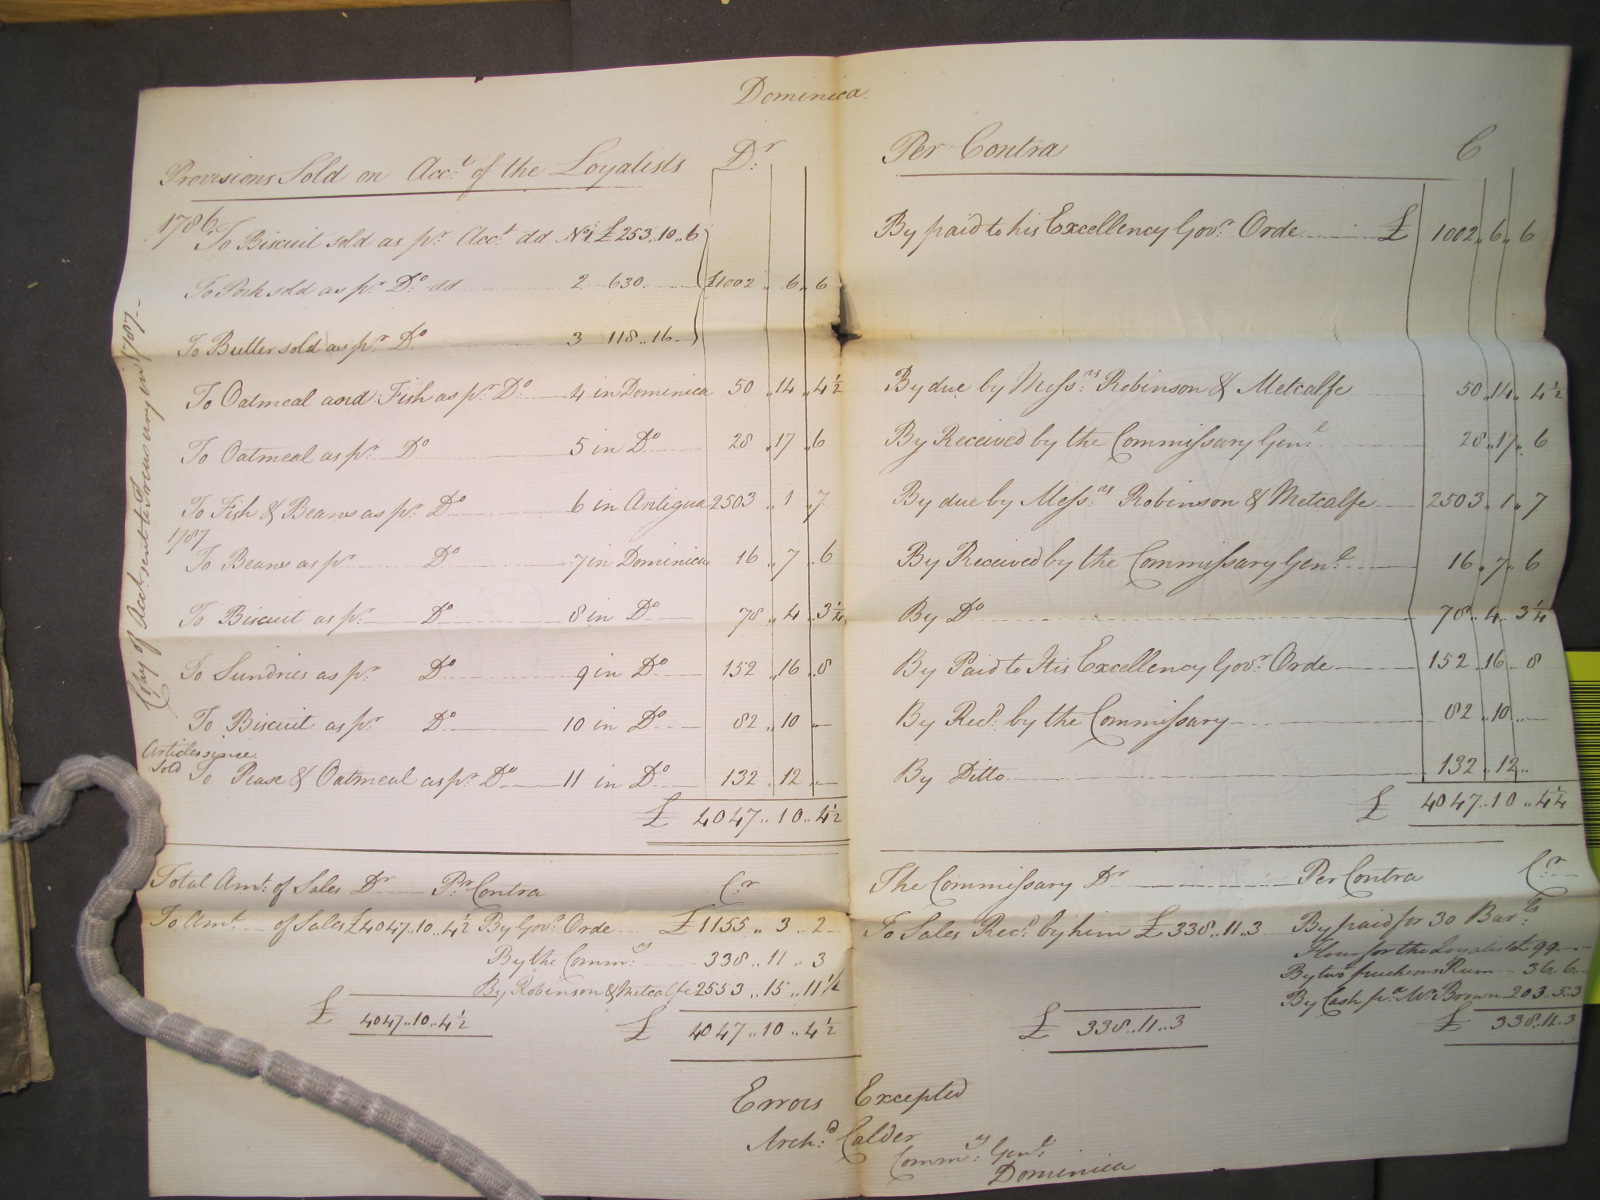 Dominica
Provisions Sold on Acct. of the Loyalists Dr.
1786
To Biscuit sold as pr. Acct. dd No 1 £253..10..6
To Pork sold as pr. Do. dd 2 630. £1002..6..6
To Butter sold as pr. Do 3 118..16
To Oatmeal and Fish as pr. Do 4 in Dominica 50..14..4½
To Oatmeal as pr. Do 5 in Do 28..17..6
To Fish & Beans as pr. Do 6 in Antigua 2503..1..7
1787
To Beans as pr. Do 7 in Dominica 16..7..6
To Biscuit as pr. Do 8 in Do 78..4..3¼
To Sundries as pr. Do 9 in Do 152..16..8
To Biscuit as pr. Do 10 in Do 82..10..—
Articles since
Sold To Pease & Oatmeal as pr. Do 11 in Do 132..12..—
£ 4047..10..4½
Copy of Acct. sent to Treasury in 1787—
Per Contra C
By paid to his Excellency Govr. Orde £ 1002..6..6
By due by Messrs. Robinson & Metcalfe 50..14..4½
By Received by the Commissary Genl. 28..17..6
By due by Messrs. Robinson & Metcalfe 2503..1..7
By Received by the Commissary Genl. 16..7..6
By Do 78..4..3¼
By Paid to His Excellency Govr. Orde 152..16..8
By Recd. by the Commissary 82..10..—
By Ditto 132..12..
£ 4047..10..4¼
Total Amt. of Sales Dr Pr. Contra Cr
To Amt. of Sales £4047..10..4½ By Govr. Orde £1155..3..2
By the Commy. 338..11..3
By Robinson & Metcalfe 2553..15..11½
£ 4047..10..4½ £ 4047..10..4½
The Commissary Dr Per Contra Cr
To Sales Recd. by him £338..11..3 By paid for 30 Barls
Flour for the Loyalists 99
By two puncheons Rum 36..6
By Cash pr. Wm Brown 203..5..3
£ 338..11..3 £ 338..11..3
Errors Excepted
Archd. Calder
Commy. Genl.
Dominica